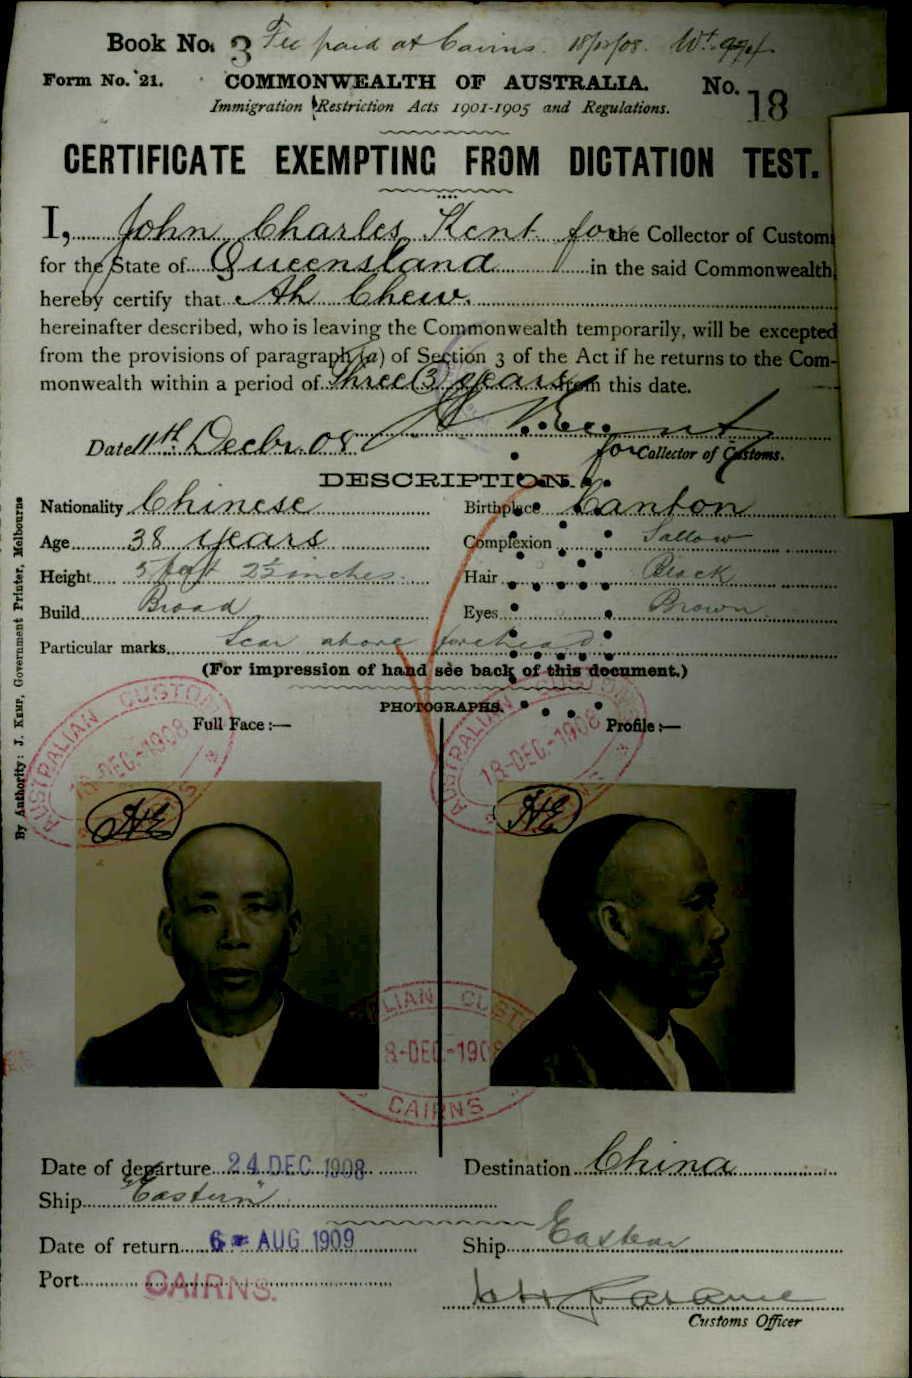 Book No. 3 Fee paid at Cairns. 18/12/08.
Form No. 21. COMMONWEALTH OF AUSTRALIA. No. 18
Immigration Restriction Acts 1901-1905 and Regulations.
CERTIFICATE EXEMPTING FROM DICTATION TEST.
I, John Charles Kent for the Collector of Customs
for the State of Queensland in the said Commonwealth,
hereby certify that Ah Chew.
hereinafter described, who is leaving the Commonwealth temporarily, will be excepted
from the provisions of paragraph (a) of Section 3 of the Act if he returns to the Com-
monwealth within a period of Three (3) years from this date.
Date 11th Decbr. 08 for Collector of Customs.
DESCRIPTION.
Nationality Chinese Birthplace Canton
Age 38 years Complexion Sallow
Height 5 feet 2½ inches. Hair Black
Build Broad Eyes Brown
Particular marks Scar above forehead
(For impression of hand see back of this document.)
PHOTOGRAPHS.
Full Face:— Profile:—
AUSTRALIAN CUSTOMS
18-DEC.-1908
AUSTRALIAN CUSTOMS
18-DEC.-1908
HE
HE
ALIAN CUSTO
8-DEC.-1908
CAIRNS
Date of departure 24 DEC 1908 Destination China
Ship "Eastern"
Date of return 6 - AUG 1909 Ship Eastern
Port CAIRNS.
Customs Officer
By Authority: J. KEMP, Government Printer, Melbourne